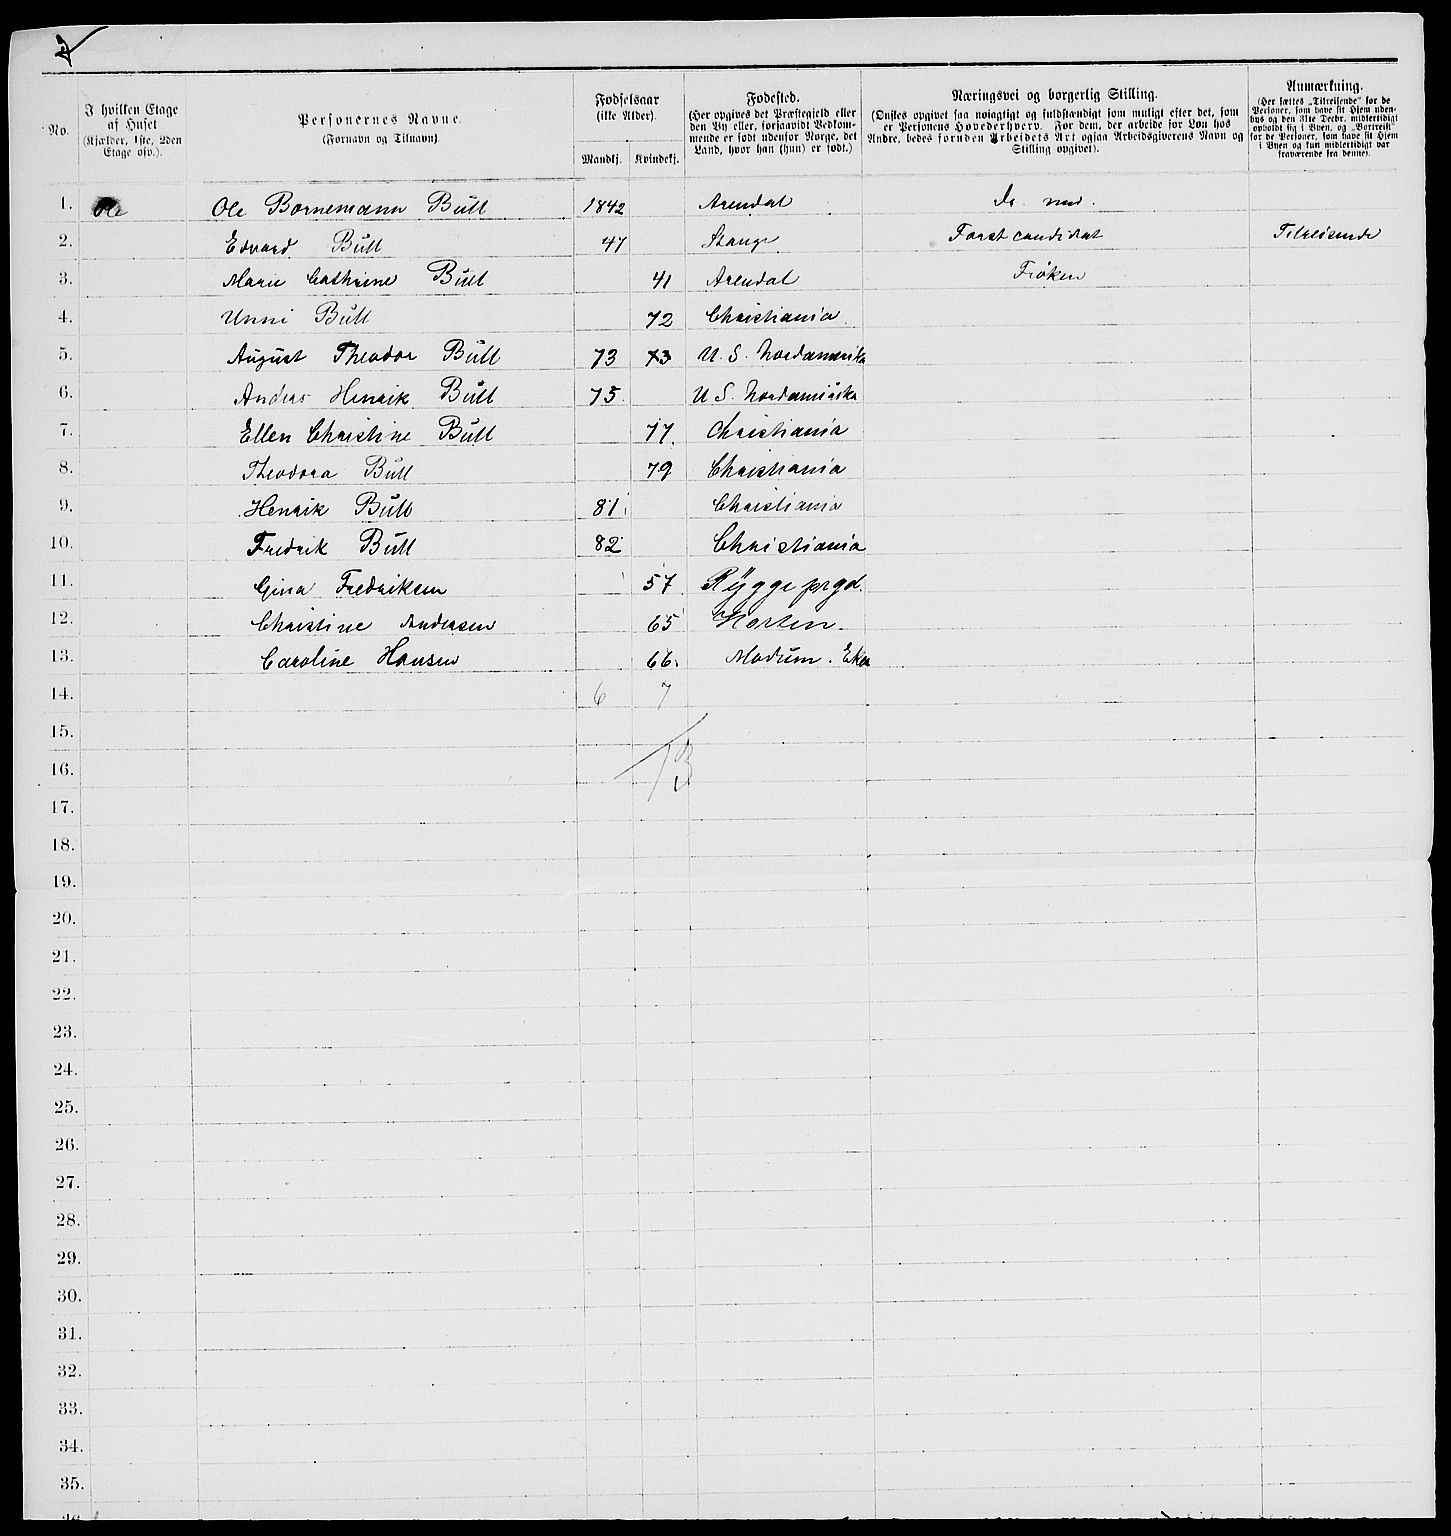 No.
I hvilken Etage af Huset (Kjælder, 1ste, 2den Etage osv.).
Personernes Navne. (Fornavn og Tilnavn).
Fødselsaar (ikke Alder).
Mandkj. Kvindekj.
Fødested. (Her opgives det Præstegjeld eller den By eller, forsaavidt Vedkommende er født udenfor Norge, det Land, hvor han (hun) er født.)
Næringsvei og borgerlig Stilling. (Ønskes opgivet saa nøiagtigt og fuldstændigt som muligt efter det, som er Personens Hovederhverv. For dem, der arbeide for Løn hos Andre, bedes foruden Arbeidets Art ogsaa Arbeidsgiverens Navn og Stilling opgivet).
Anmærkning. (Her sættes „Tilreisende“ for de Personer, som have sit Hjem udenbys og den 31te Decbr. midlertidigt opholdt sig i Byen, og „Bortreist“ for de Personer, som have sit Hjem i Byen og kun midlertidigt var fraværende fra denne).
1. Ole Ole Bornemann Bull 1842 Arendal Dr. med.
2. Edvard Bull 47 Stange Forstcandidat Tilreisende
3. Marie Cathrine Bull 41 Arendal Frøken
4. Unni Bull 72 Christiania
5. August Theodor Bull 73 73 U. S. Nordamerika
6. Anders Henrik Bull 75 U S. Nordamerika
7. Ellen Christine Bull 77. Christiania
8. Theodora Bull 79 Christiania
9. Henrik Bull 81 Christiania
10. Fredrik Bull 82 Christiania
11. Gina Fredriksen 57 Rygge prgd.
12. Christine Andersen 65 Horten.
13. Caroline Hansen 66. Modum. Eker
14. 6 7
15.
16. 13
17.
18.
19.
20.
21.
22.
23.
24.
25.
26.
27.
28.
29.
30.
31.
32.
33.
34.
35.